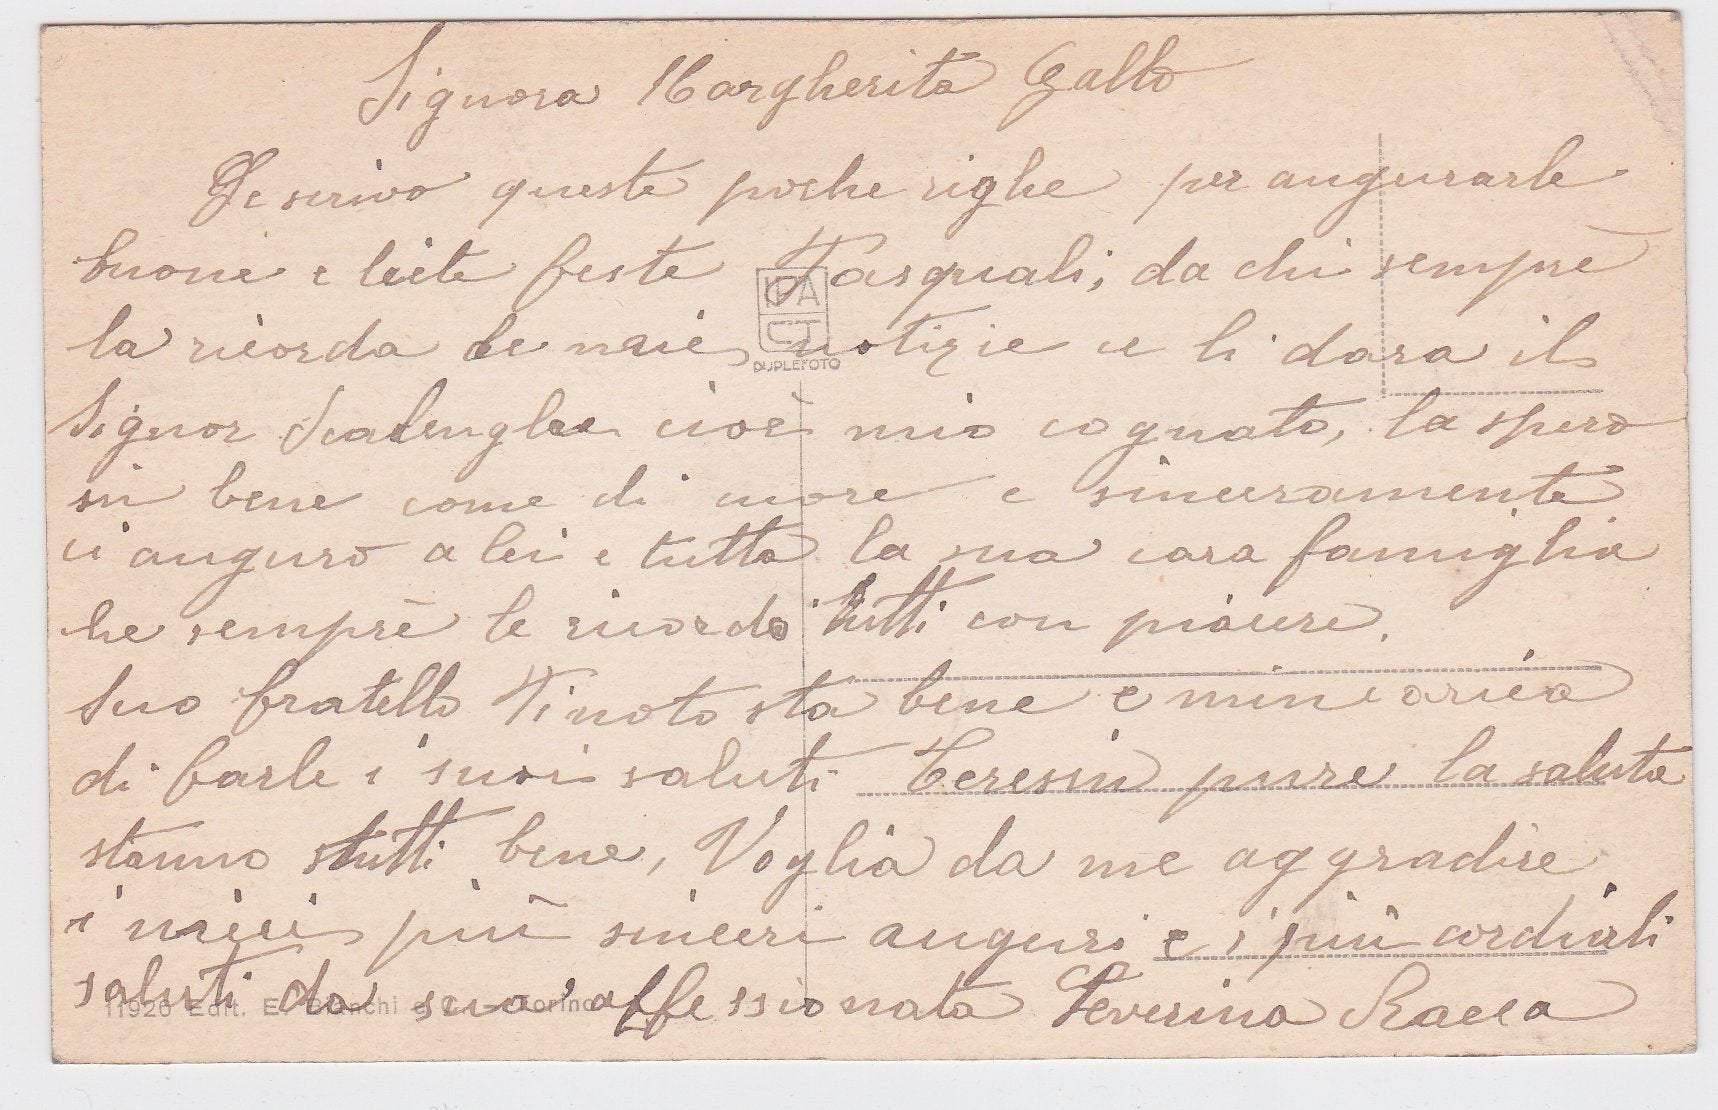 Signora Margherita Gallo
Le scrivo queste poche righe per augurarle
buone e liete feste Pasquali, da chi semprè
la ricorda le miei notizie ce li dara il
Signor Scalenghe cioè mio cognato, la spero
in bene come di cuore e sinceramente
ci auguro a lei e tutta la sua cara famiglia
he semprè le ricordo tutti con piacere.
Suo fratello Tinoto sta bene e mincarica
di farle i suoi saluti Teresin pure la saluta
stanno tutti bene, Voglia da me aggradire
i miei più sinceri auguri e i più cordiali
saluti da sua affessionata Severina Racca
IPA
CT
DUPLEFOTO
11920 Edit. E. Bianchi e C. - Torino